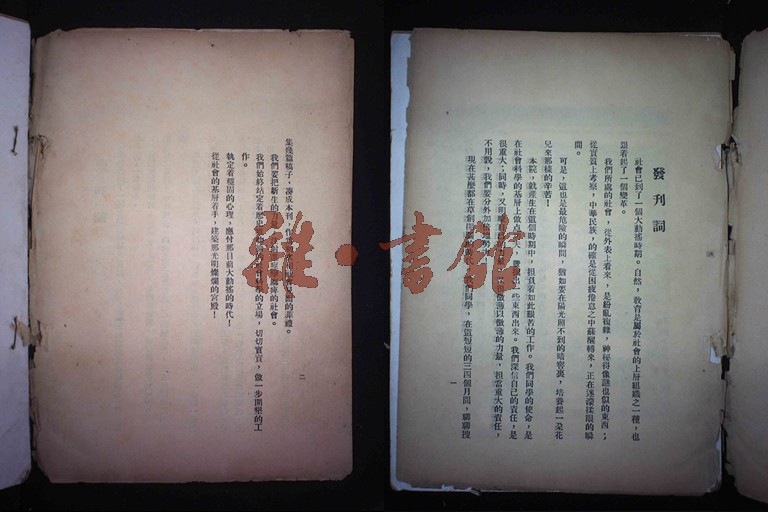 發刊詞
社會已到了一個大動搖時期。自然,教育是屬於社會的上層組織之一種,也
跟着起了一個變革。
我們所處的社會,從外表上看來,是紛亂複雜,神秘得像謎也似的東西;
從實質上考察,中華民族,的確是從困疲倦怠之中蘇醒轉來,正在迷濛揉眼的瞬
間。
可是,這也是最危險的瞬間,猶如要在陽光照不到的暗窖裏,培養起一朵花
兒來那樣的辛苦!
本院,就產生在這個時期中,担負着如此艱苦的工作。我們同學的使命,是
在社會科學的基層上做点 一些東西出來。我們深信自己的責任,是
很重大;同時,又明 微渺只微渺的力量,担當重大的責任,
不用說,我們要分外加
現在甚麼都在草創 我們同學,在這短短的三四個月間,聊聊搜
一
集幾篇稿子,湊成本刊,作 的菲禮。
我們要把新生的 的社會。
我們始終站定着歷史 的立場,切切實實,做一步開墾的工
作。
執定着穩固的心理,應付那目前大動搖的時代!
從社會的基層着手,建築那光明燦爛的宮殿!
二
雜·書館